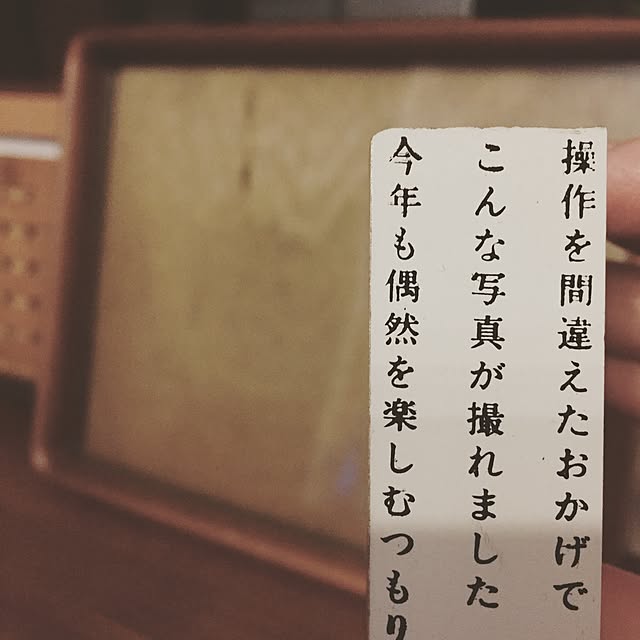 操作を間違えたおかげで
こんな写真が撮れました
今年も偶然を楽しむつもり